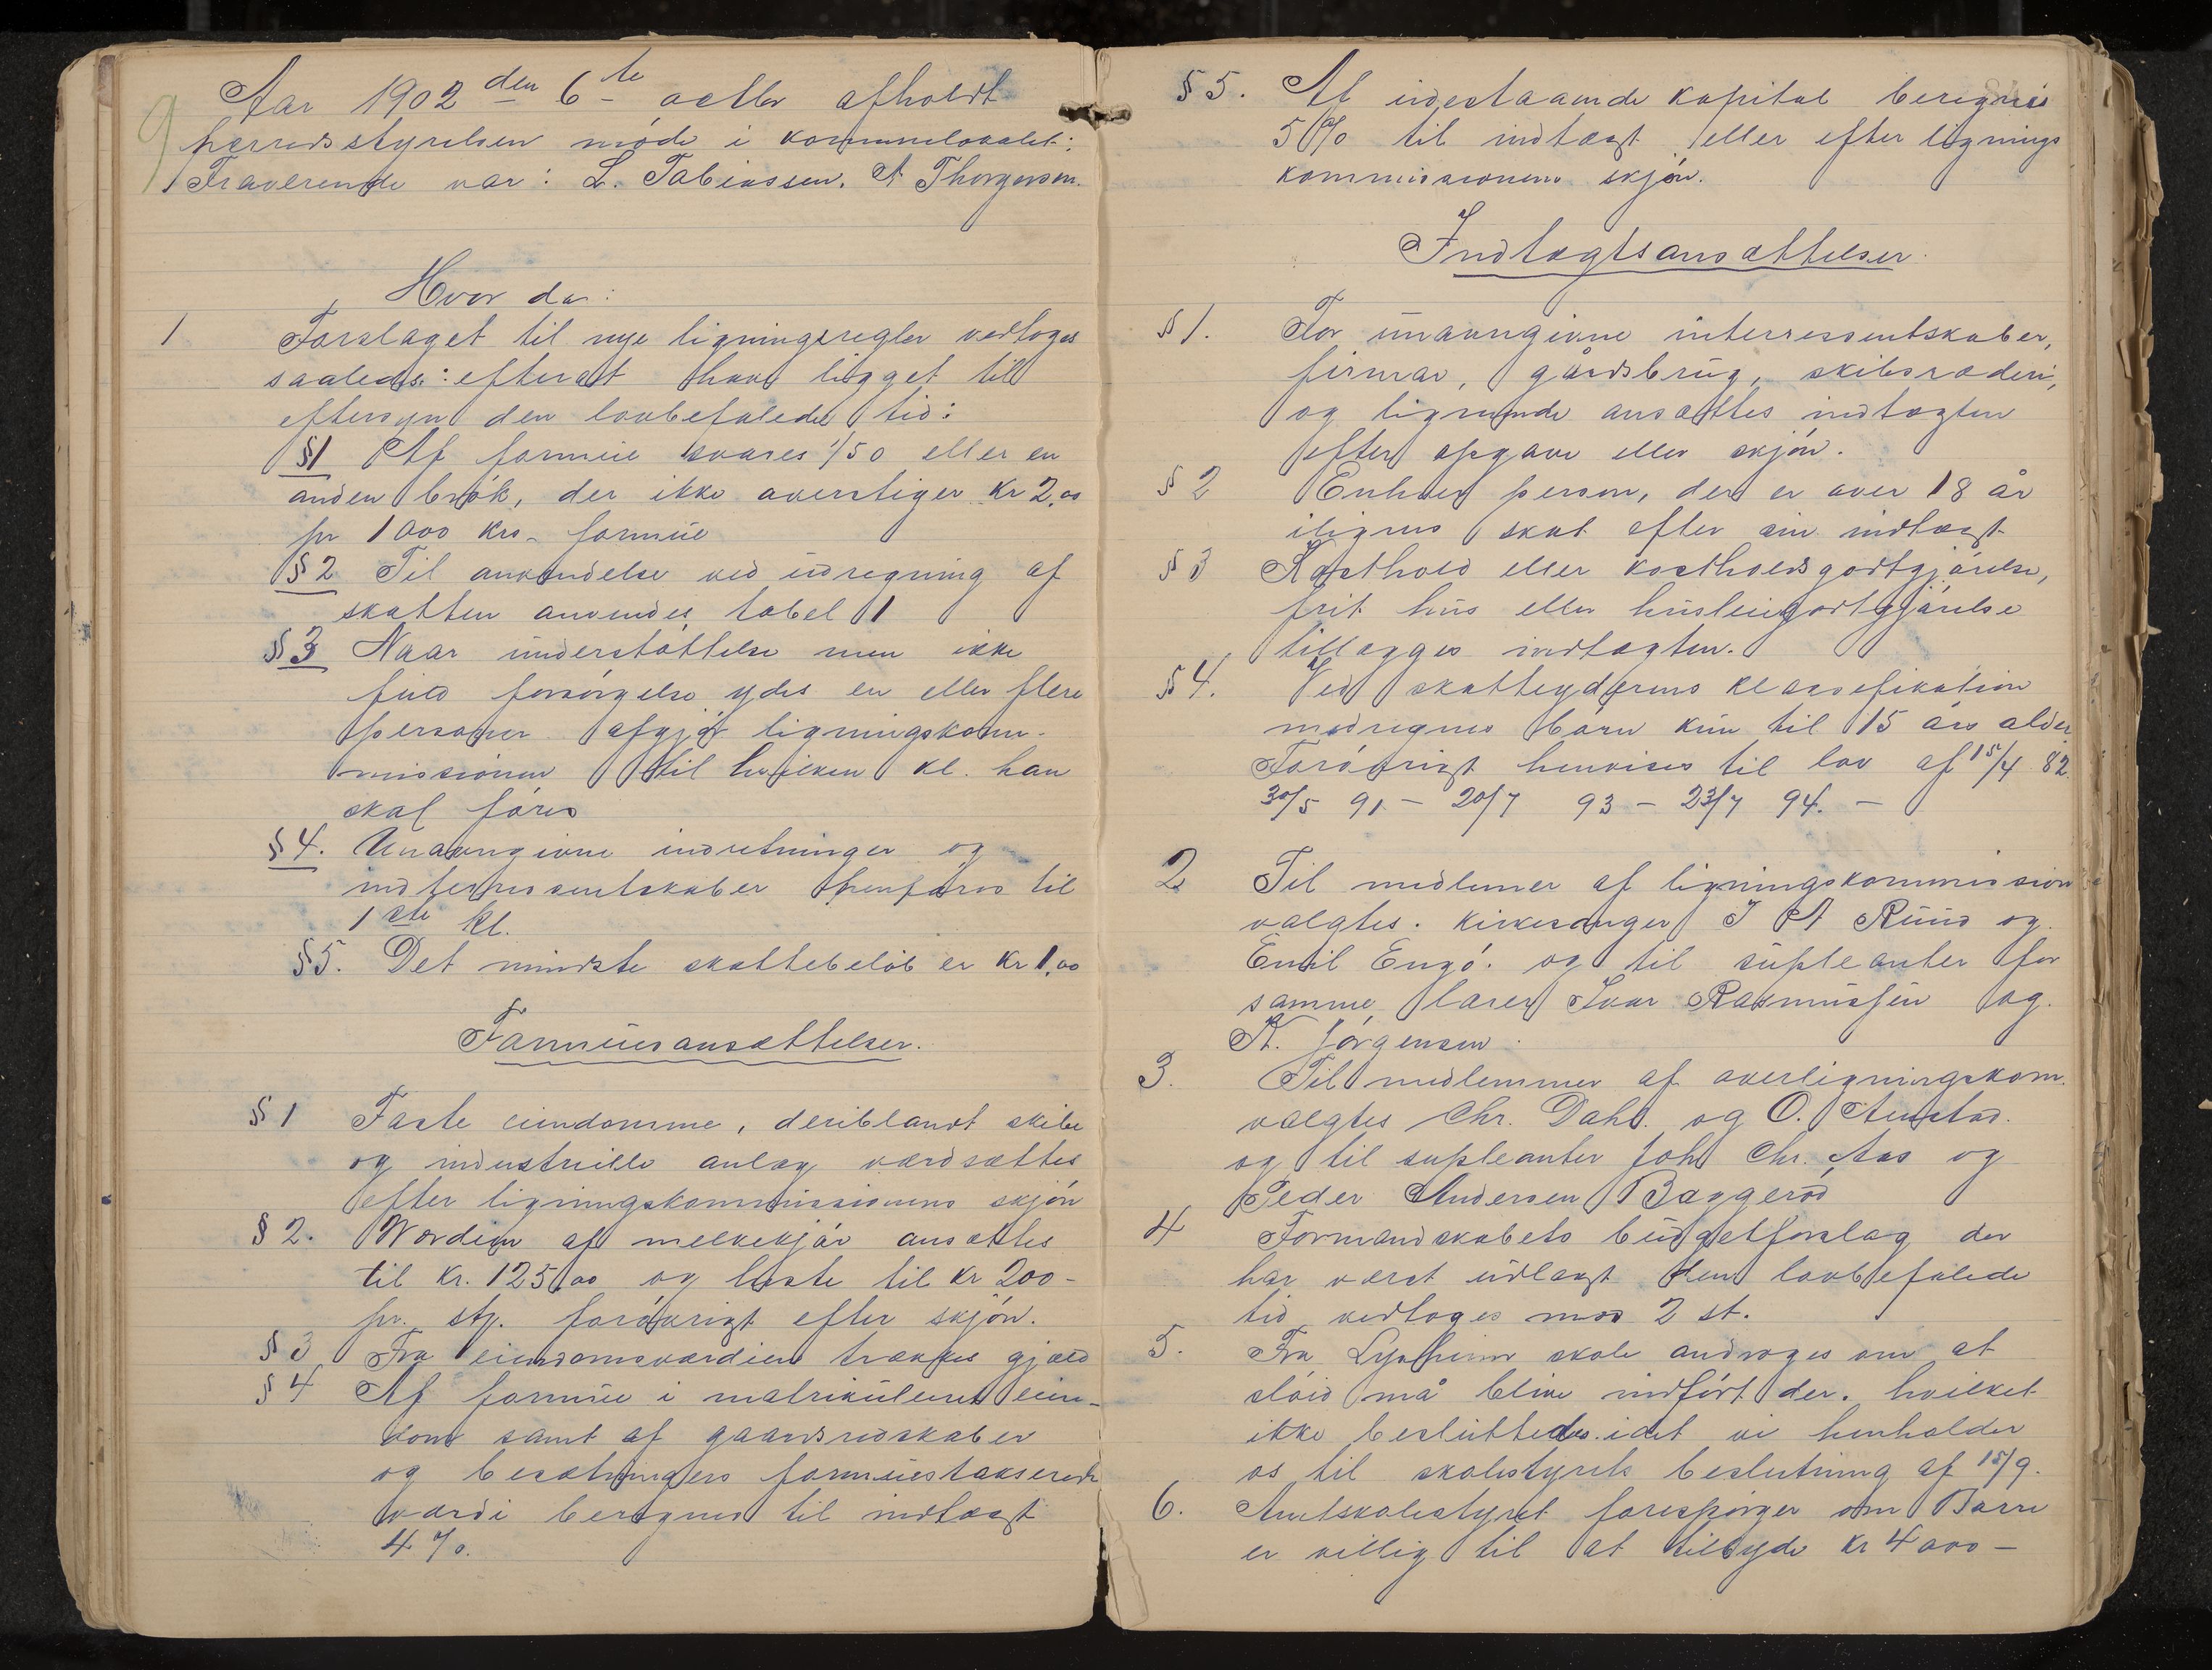 9
Aar 1902 den 6te octbr afholdt
herredsstyrelsen møde i kommunelokalet:
Fraværende var: L. Tobiassen. A Thorgersen.
Hvor da:
1 Forslaget til nye ligningsregler vedtoges
saaledes: efterat have ligget til
eftersyn den lovbefalede tid:
§1 Af formue svares 1/50 eller en
anden brøk, der ikke overstiger kr 2,00
pr 1000 krs- formue
§2 Til anvendelse ved udregning af
skatten anvendes tabel 1
§3 Naar understøttelse men ikke
fuld forsørgelse ydes en eller flere
personer afgjør ligningskom-
missionen til hvilken kl. han
skal føres
§4. Unavngivne indretninger og
indterressentskaber henføres til
1ste kl.
§5. Det mindste skattebeløb er kr 1,00
Formuesansættelser.
§1 Faste eiendomme, deriblandt skibe
og industrielle anlæg værdsættes
efter ligningskommissionens skjøn
§2. Værdien af melkekjør ansættes
til kr. 125,00 og heste til kr 200-
pr. stk. forøvrigt efter skjøn.
§3 Fra eiendomsværdien trækkes gjæld
§4 Af formue i matrikuleret eien-
dom samt af gaardsredskaber
og besætningers formuestakserede
værdi beregnes til indtægt
4 %.
§5. Af indestaaende kapital beregnes
5% til indtægt eller efter lignings
kommissionens skjøn.
Indtægtsansættelser.
§1. For unavngivne interressentskaber,
firmar, gårdsbrug, skibsræderi,
og lignende ansættes indtægten
efter opgave eller skjøn.
§2 Enhver person, der er over 18 år
ilignes skat efter sin indtægt
§3 Kosthold eller kostholdsgodtgjørelse,
frit hus eller husleiegodtgjørelse
tillægges indtægten.
§4. Ved skatteyderens klassefikation
medregnes barn kun til 15 års alder
Forøvrigt henvises til lov af 15/4 82.
30/5 91 - 20/7 93 - 23/7 94. -
2 Til medlemer af ligningskommission
valgtes. kirkesanger J A Ruud og
Emil Engø. og til supleanter for
samme, lærer Ivar Rasmussen og.
K. Jørgensen.
3. Til medlemmer af overligningskom.
valgtes Chr. Dahl. og O. Aunstad.
og til supleanter Joh Chr. Aas og
Peder Andersen Baggerød
4 Formandskabets budgetforslag der
har været udlagt den lovbefalede
tid vedtoges mod 2 st.
5. Fra Lysheim skole androges om at
sløid må blive indført der. hvilket
ikke besluttedes. idet vi henholder
os til skolestyrets beslutning af 15/9.
6. Amtskolestyret forespørger om Borre
er villig til at tilbyde kr 4000-